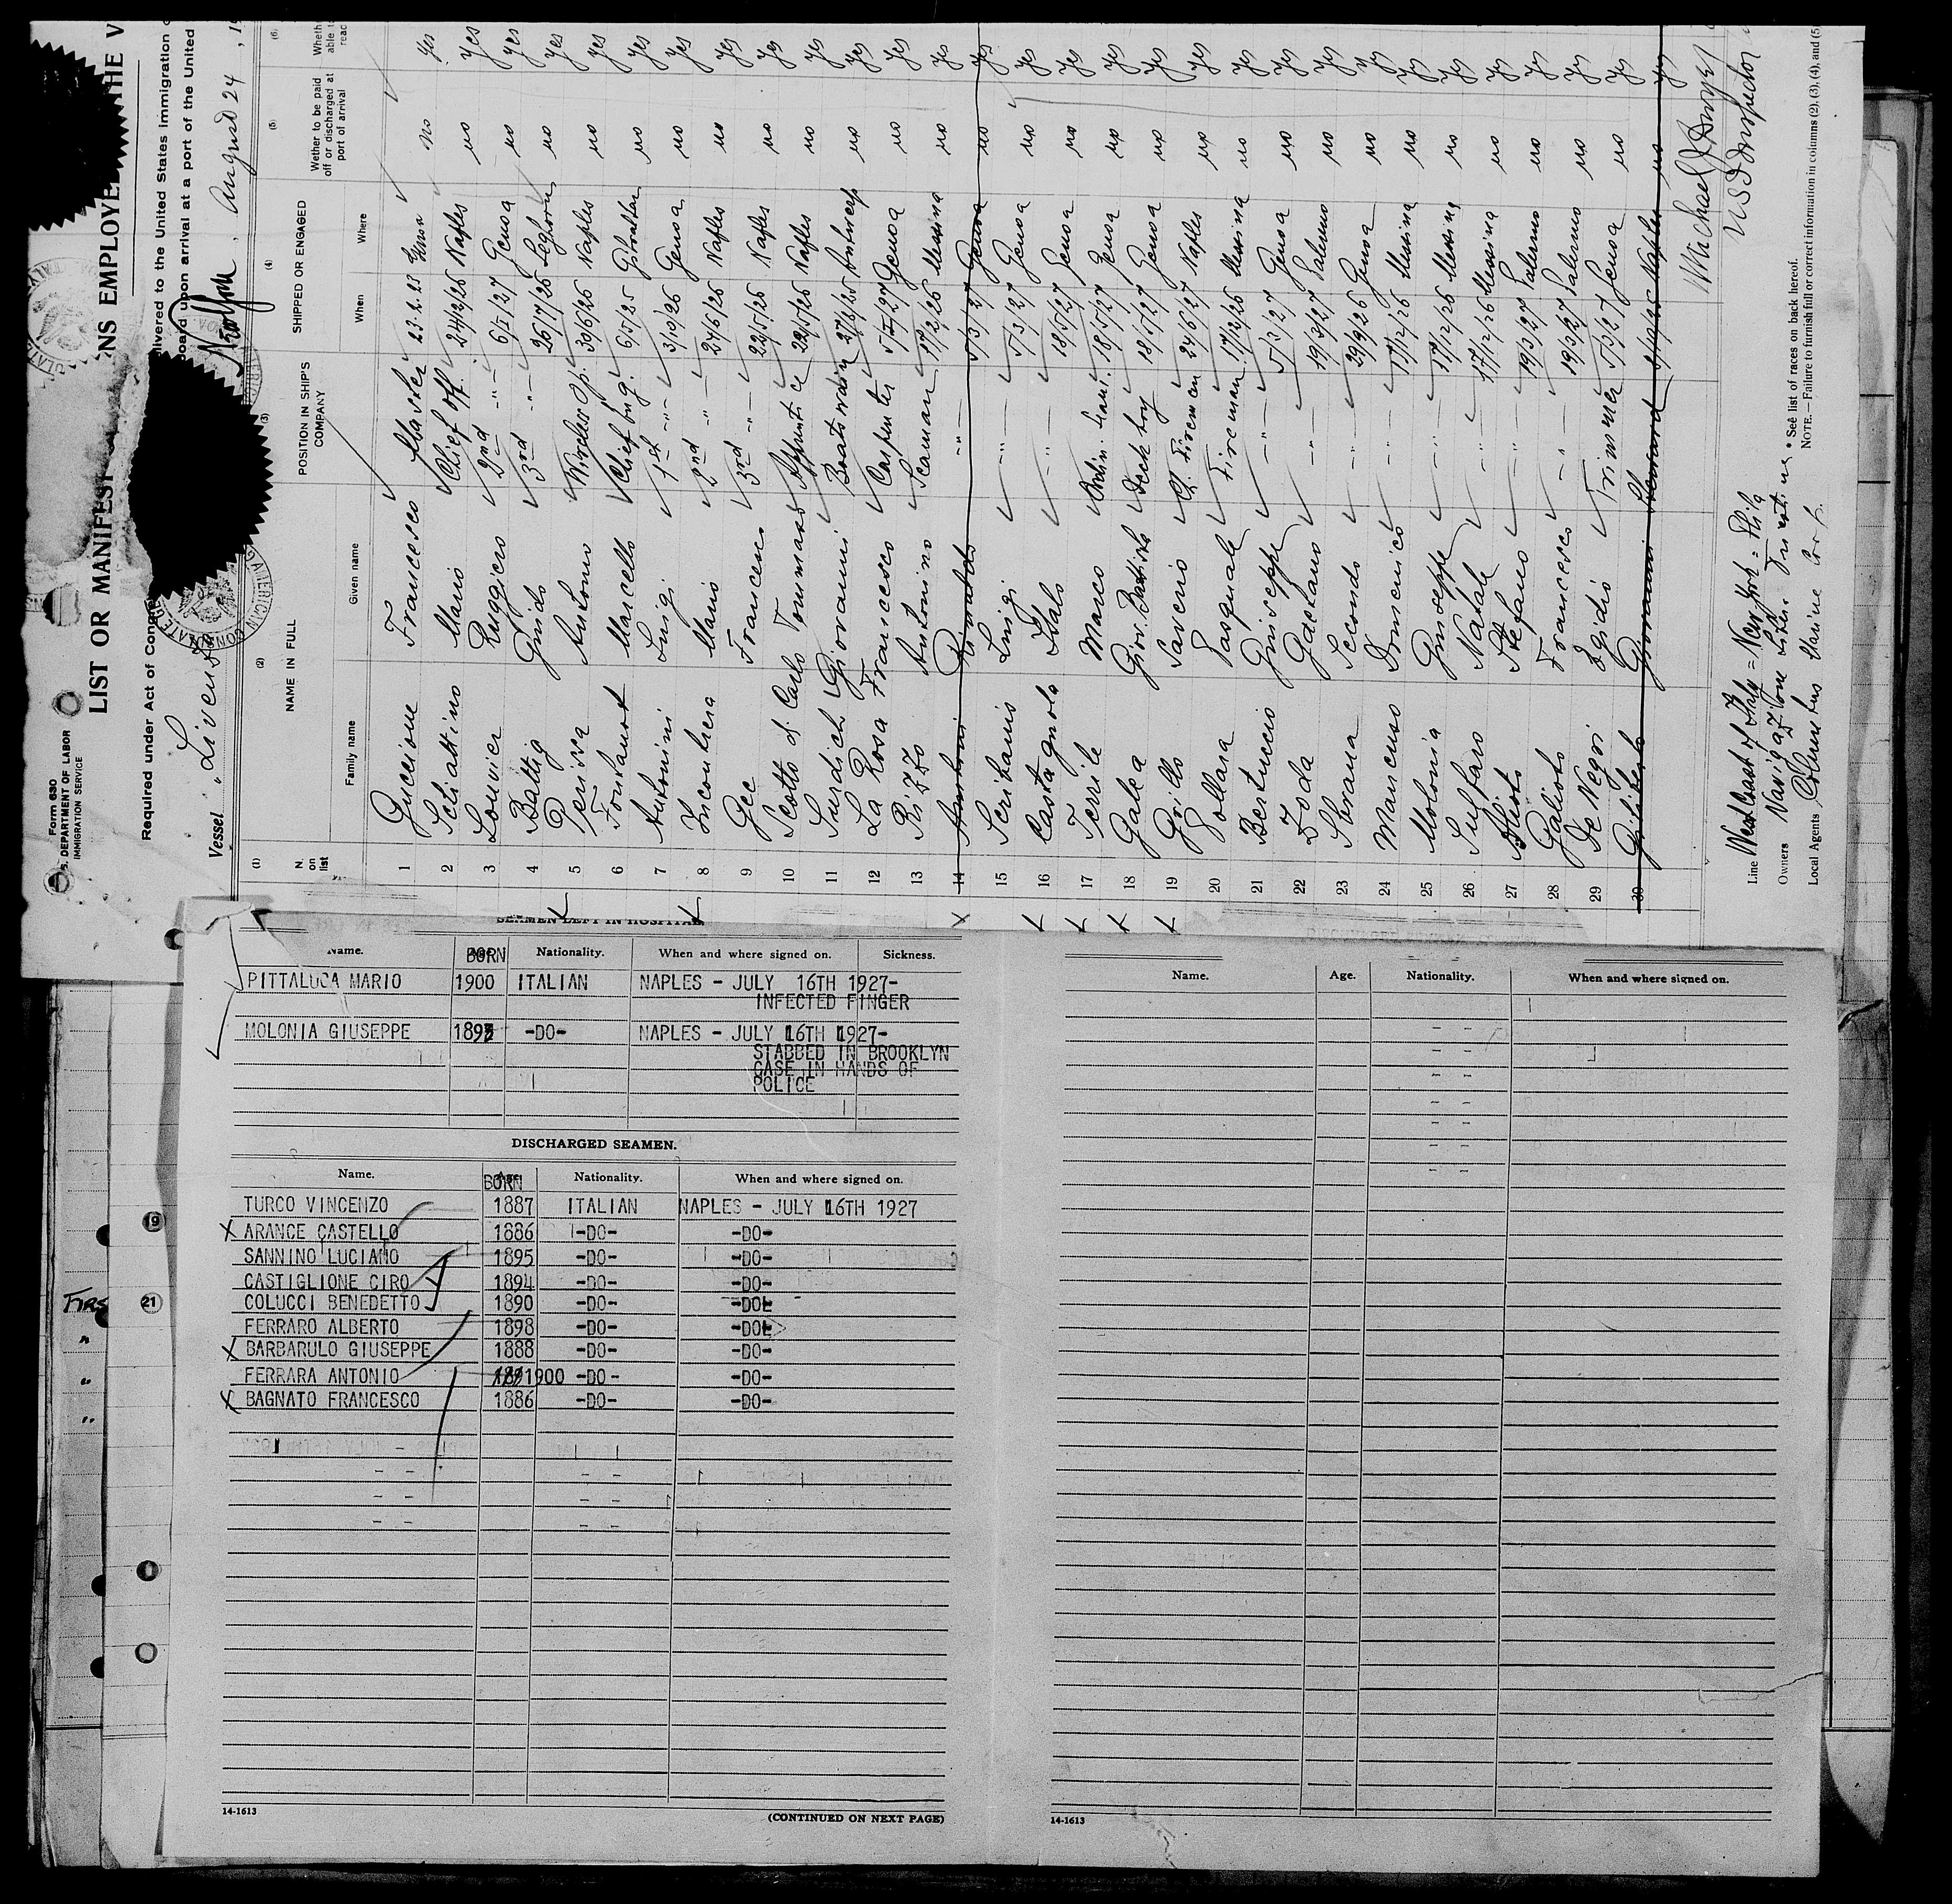 Form 630
S. DEPARTMENT OF LABOR
IMMIGRATION SERVICE
LIST OR MANIFEST NS EMPLOYED THE V
Required under Act of Congre livered to the United States immigration
board upon arrival at a port of the United
Vessel August 24, 19
(1) (2) (3) (4) (5) (6)
N. on list
NAME IN FULL
Family name Given name
POSITION IN SHIP'S COMPANY
SHIPPED OR ENGAGED
When Where
Wether to be paid off or discharged at port of arrival
Wheth able t read
1 Guccione Francesco Master 23.2.23 Genoa no yes
2 Schiattino Mario Chief off. 24/2/26 Naples no yes
3 Louvier Ruggiero 2nd -"- Genoa no yes
4 Battig Guido 3rd -"- Leghorn no yes
5 Perissa Antonio Wireless Op. 30/6/26 Naples no yes
6 Fontanot Marcello Chief Eng. Gibraltar no yes
7 Antonini Luigi 1st -"- 3/10/26 Genoa no yes
8 Incontrera Mario 2nd -"- 24/6/26 Naples no yes
9 Gec Francesco 3rd -"- 22/5/26 Naples no yes
10 Scotto di Carlo Tommaso Apprentice 22/5/26 Naples no yes
11 Surdich Giovanni Boatswain 27/8/26 Antwerp no yes
12 La Rosa Francesco Carpenter Genoa no yes
13 Rizzo Antonino Seaman 17/2/26 Messina no yes
14 -"- 5/3/27 Genoa no yes
15 Luigi -"- 5/3/27 Genoa no yes
16 Castagnola Italo -"- 18/5/27 Genoa no yes
17 Terrile Marco 18/5/27 Genoa no yes
18 Galea Giov. Battista Deck boy 18/5/27 Genoa no yes
19 Grillo Saverio Ch. Fireman 24/6/27 Naples no yes
20 Sollara Pasquale Fireman 17/12/26 Messina no yes
21 Bertuccio Giuseppe -"- 5/3/27 Genoa no yes
22 Zoda Gaetano -"- 19/3/27 Palermo no yes
23 Sbrana Secondo -"- 29/9/26 Genoa no yes
24 Mancuso Domenico -"- 17/12/26 Messina no yes
25 Molonia Giuseppe -"- 17/12/26 Messina no yes
26 Sulfaro Natale -"- 17/12/26 Messina no yes
27 Stefano -"- 19/3/27 Palermo no yes
28 Galioto Francesco -"- 19/3/27 Palermo no yes
29 De Negri Egidio Trimmer 5/3/27 Genoa no yes
30 Giliberto Giovanni Steward Naples no yes
Michael J Dwyer
U S I Inspector
Line West Coast of Italy = New York = Phila
Owners Navigazione Libera Triestina
Local Agents Columbus Marine Corp.
* See list of races on back hereof.
NOTE.—Failure to furnish full or correct information in columns (2), (3), (4), and (5)
SEAMEN LEFT IN HOSPITAL
Name. BORN Nationality. When and where signed on. Sickness.
PITTALUCA MARIO 1900 ITALIAN NAPLES - JULY 16TH 1927-
INFECTED FINGER
MOLONIA GIUSEPPE -DO- NAPLES - JULY 16TH 1927-
STABBED IN BROOKLYN
CASE IN HANDS OF
POLICE
DISCHARGED SEAMEN.
Name. BORN Nationality. When and where signed on.
TURCO VINCENZO 1887 ITALIAN NAPLES - JULY 16TH 1927
X ARANCE CASTELLO 1886 -DO- -DO-
SANNINO LUCIANO 1895 -DO- -DO-
CASTIGLIONE CIRO 1894 -DO- -DO-
COLUCCI BENEDETTO 1890 -DO- -DO-
FERRARO ALBERTO 1898 -DO- -DO-
X BARBARULO GIUSEPPE 1888 -DO- -DO-
FERRARA ANTONIO 1900 -DO- -DO-
X BAGNATO FRANCESCO 1886 -DO- -DO-
14-1613
(CONTINUED ON NEXT PAGE)
Name. Age. Nationality. When and where signed on.
14-1613
19
FIRS 21
"
"
"